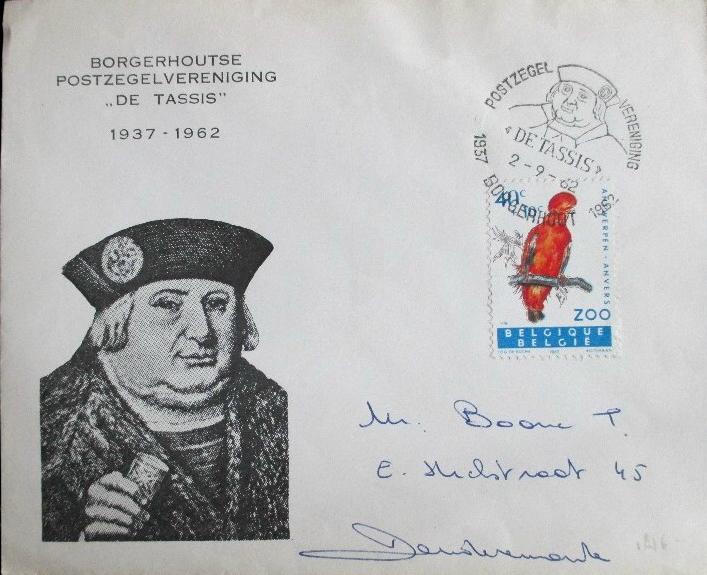 BORGERHOUTSE
POSTZEGELVERENIGING
„DE TASSIS”
1937 - 1962
POSTZEGEL VERENIGING
« DE TASSIS »
2 - 9 - 62
1937 BORGERHOUT 1962
40c
ANTWERPEN - ANVERS
ZOO
BELGIQUE
BELGIË
Mr. Boone T.
45
Dendermonde